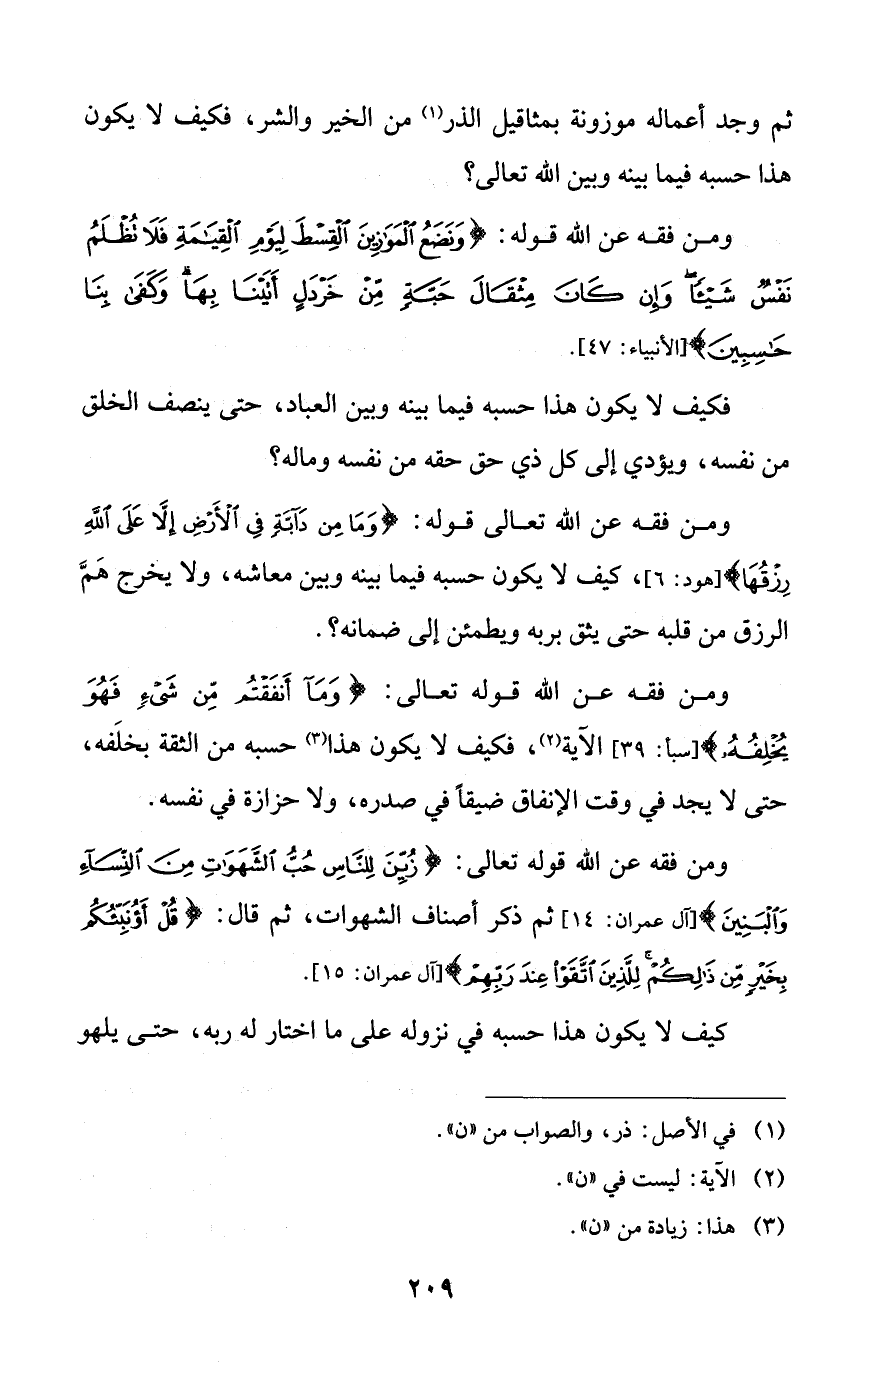 ثم وجد أعماله موزونة بمثاقيل الذر(١) من الخير والشر، فكيف لا يكون
هذا حسبه فيما بينه وبين الله تعالى؟
ومـن فقـه عن الله قـوله: ﴿وَنَضَعُ ٱلْمَوَٰزِينَ ٱلْقِسْطَ لِيَوْمِ ٱلْقِيَٰمَةِ فَلَا تُظْلَمُ
نَفْسٌ شَيْـًٔا ۖ وَإِن كَانَ مِثْقَالَ حَبَّةٍ مِّنْ خَرْدَلٍ أَتَيْنَا بِهَا ۗ وَكَفَىٰ بِنَا
حَٰسِبِينَ﴾[الأنبياء: ٤٧].
فكيف لا يكون هذا حسبه فيما بينه وبين العباد، حتى ينصف الخلق
من نفسه، ويؤدي إلى كل ذي حق حقه من نفسه وماله؟
ومـن فقـه عن الله تعـالى قـوله: ﴿وَمَا مِن دَآبَّةٍ فِى ٱلْأَرْضِ إِلَّا عَلَى ٱللَّهِ
رِزْقُهَا﴾[هود: ٦]، كيف لا يكون حسبه فيما بينه وبين معاشه، ولا يخرج هَمَّ
الرزق من قلبه حتى يثق بربه ويطمئن إلى ضمانه؟.
ومـن فقـه عـن الله قـوله تعـالى: ﴿وَمَآ أَنفَقْتُم مِّن شَىْءٍ فَهُوَ
يُخْلِفُهُۥ﴾[سبأ: ٣٩] الآية(٢)، فكيف لا يكون هذا(٣) حسبه من الثقة بخلَفه،
حتى لا يجد في وقت الإنفاق ضيقاً في صدره، ولا حزازة في نفسه.
ومن فقه عن الله قوله تعالى: ﴿زُيِّنَ لِلنَّاسِ حُبُّ ٱلشَّهَوَٰتِ مِنَ ٱلنِّسَآءِ
وَٱلْبَنِينَ﴾[آل عمران: ١٤] ثم ذكر أصناف الشهوات، ثم قال: ﴿قُلْ أَؤُنَبِّئُكُم
بِخَيْرٍ مِّن ذَٰلِكُمْ ۚ لِلَّذِينَ ٱتَّقَوْا۟ عِندَ رَبِّهِمْ﴾[آل عمران: ١٥].
كيف لا يكون هذا حسبه في نزوله على ما اختار له ربه، حتـى يلهو
(١) في الأصل: ذر، والصواب من «ن».
(٢) الآية: ليست في «ن».
(٣) هذا: زيادة من «ن».
٢٠٩